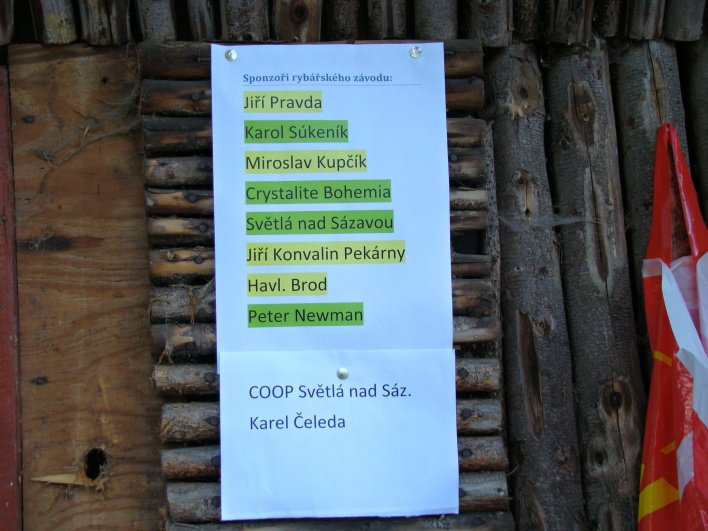 Sponzoři rybářského závodu:
Jiří Pravda
Karol Súkeník
Miroslav Kupčík
Crystalite Bohemia
Světlá nad Sázavou
Jiří Konvalin Pekárny
Havl. Brod
Peter Newman
COOP Světlá nad Sáz.
Karel Čeleda